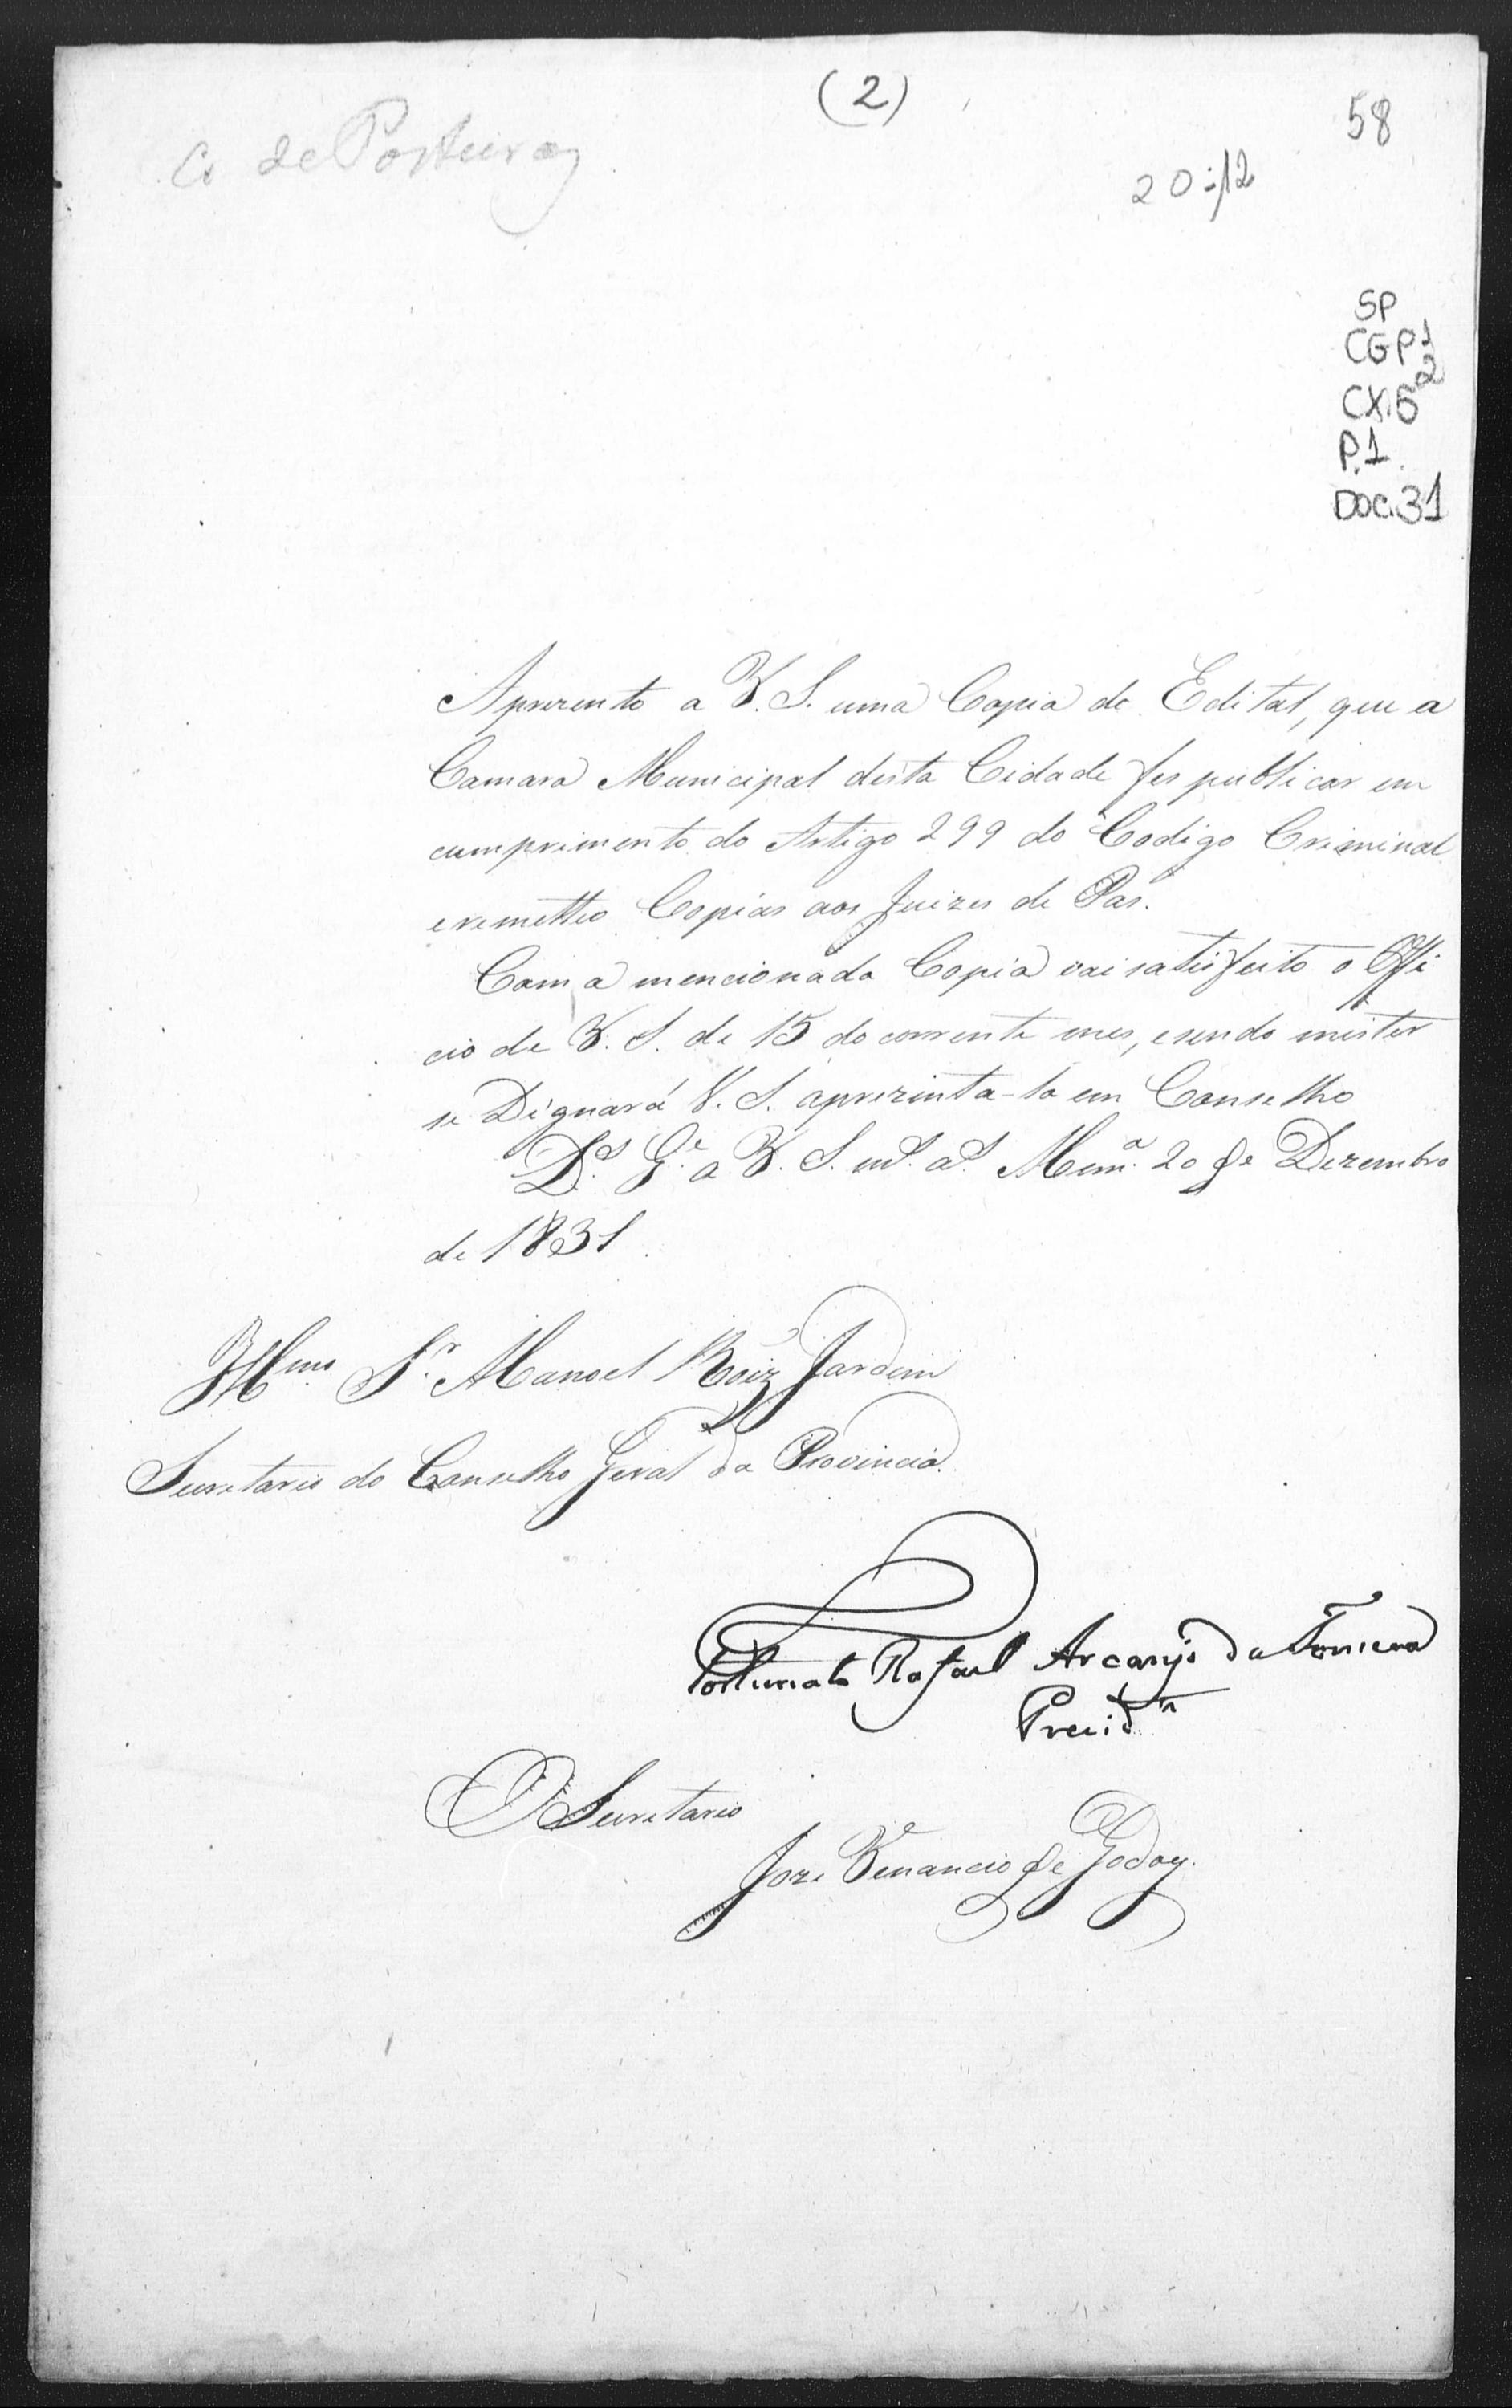 (2)
58
C. de Posturas
20-12
SP
CGP1
CX.52
P.1
DOC.31
Aprezento a V. S. uma Copia de Edital, que a
Camara Municipal desta Cidade fes publicar em
cumprimento do Artigo 299 do Codigo Criminal
e remetteo Copias aos Juizes de Pas.
Com a mencionada Copia vai satisfeito o Offi
cio de V. S. de 15 do corrente mes, e sendo mister
se Dignará V. S. aprezenta-la em Conselho
D.s G.e a V. S. m.s a.s Mem.a 20 de Dezembro
de 1831.
Illmo S.r Manoel Roiz Jardim
Secretario do Conselho Geral da Provincia.
Fortunato Rafael Arcanjo da Fonseca
Prezid.e
O Secretario
Joze Venancio de Godoy.